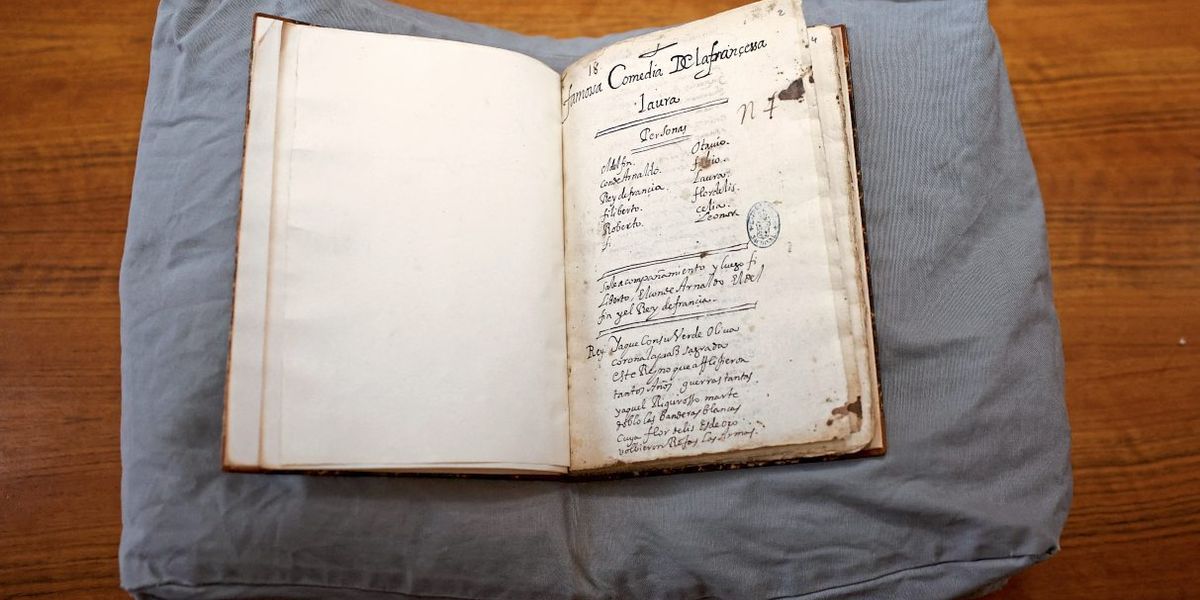 18
2
4
famosa Comedia De la françessa
Laura
N 7
Personas
Delfin.
Conde Arnaldo.
Rey de francia.
filiberto.
Roberto.
Otauio.
fabio.
Laura.
flordelis.
celia.
Leonor
Sale acompañamiento y luego fi
liberto, El conde Arnaldo El del
fin y el Rey de francia.
Rey Ya que Con su Verde Oliua
corona la paz sagrada
este Reyno que afligieron
tantos Años guerras tantas
ya que el Rigurosso marte
doblo las Banderas blancas
Cuya flor de lis Es de oro
volbieron Rojas Las Armas.